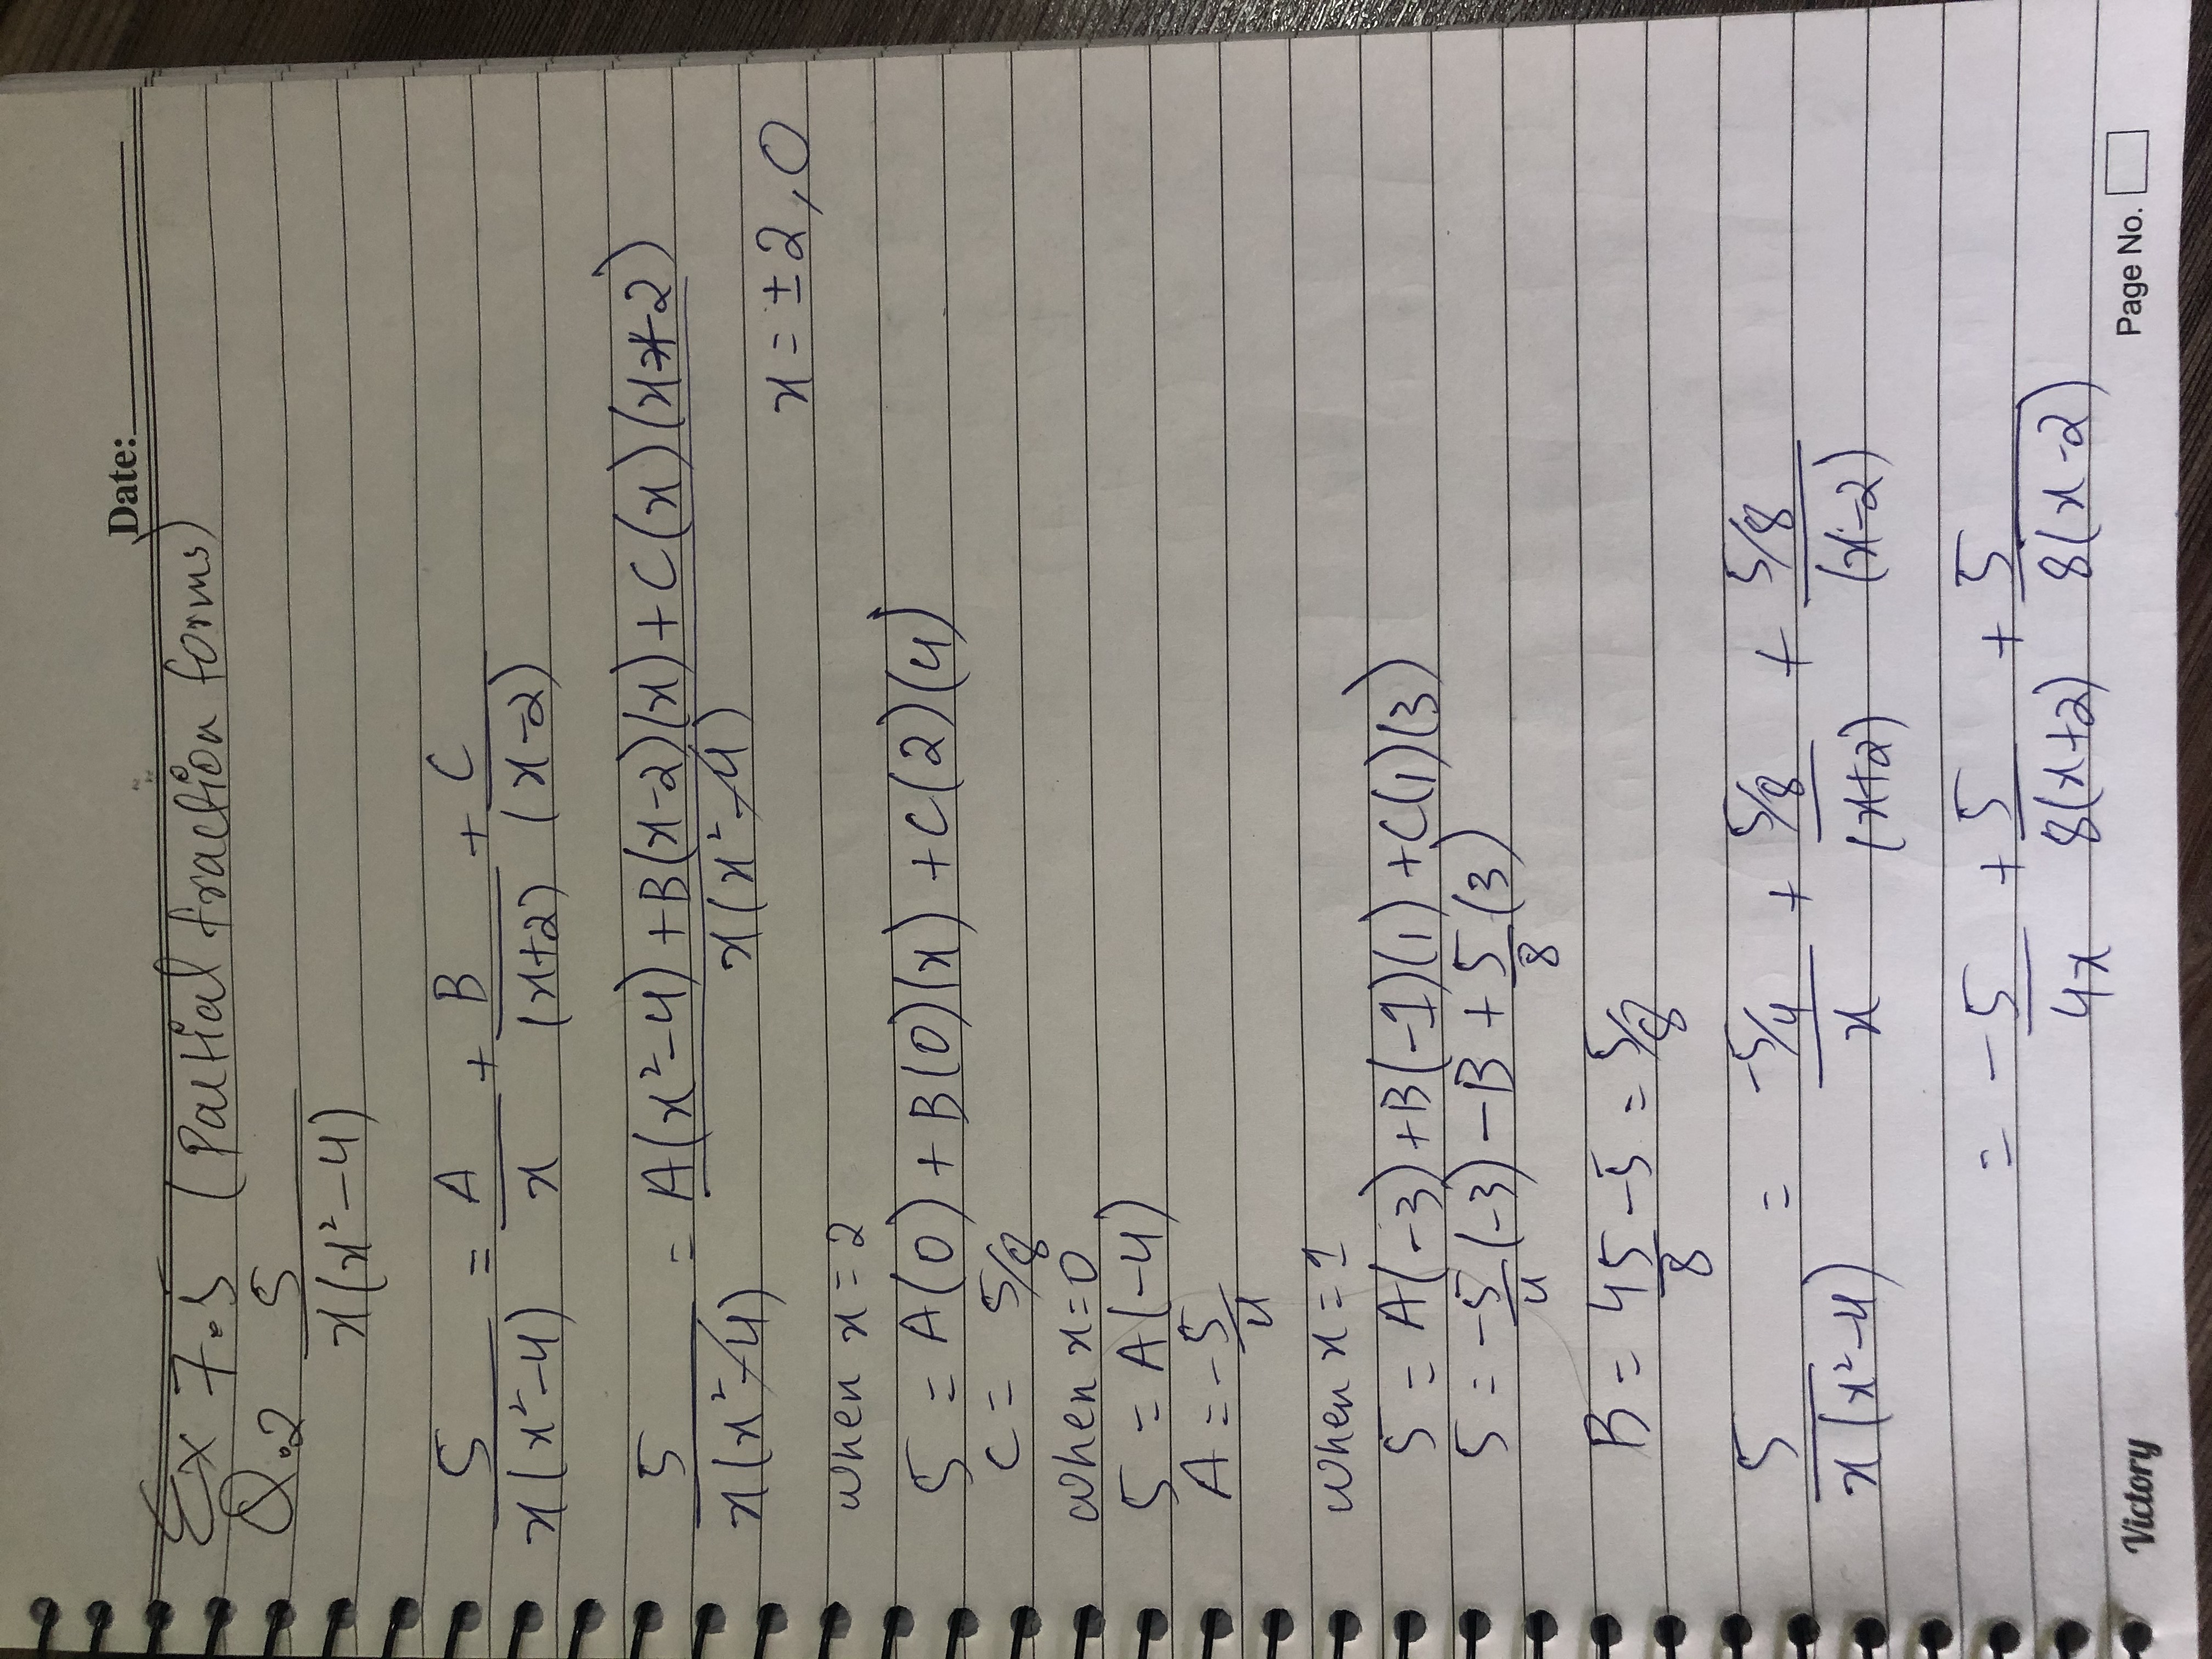 Date:
Ex 7.5 (Partial fraction forms)
Q.2 5/x(x²-4)
5/x(x²-4) = A/x + B/(x+2) + C/(x-2)
5/x(x²-4) = A(x²-4)+B(x-2)(x)+C(x)(x+2)/x(x²-4)
x = ±2, 0
when x = 2
5 = A(0) + B(0)(x) + C(2)(4)
C = 5/8
when x=0
5 = A(-4)
A = -5/4
when x = 1
5 = A(-3)+B(-1)(1)+C(1)(3)
5 = -5/4(-3) - B + 5/8(3)
B = 45/8 - 5 = 5/8
5/x(x²-4) = -5/4/x + 5/8/(x+2) + 5/8/(x-2)
= -5/4x + 5/8(x+2) + 5/8(x-2)
Victory
Page No.